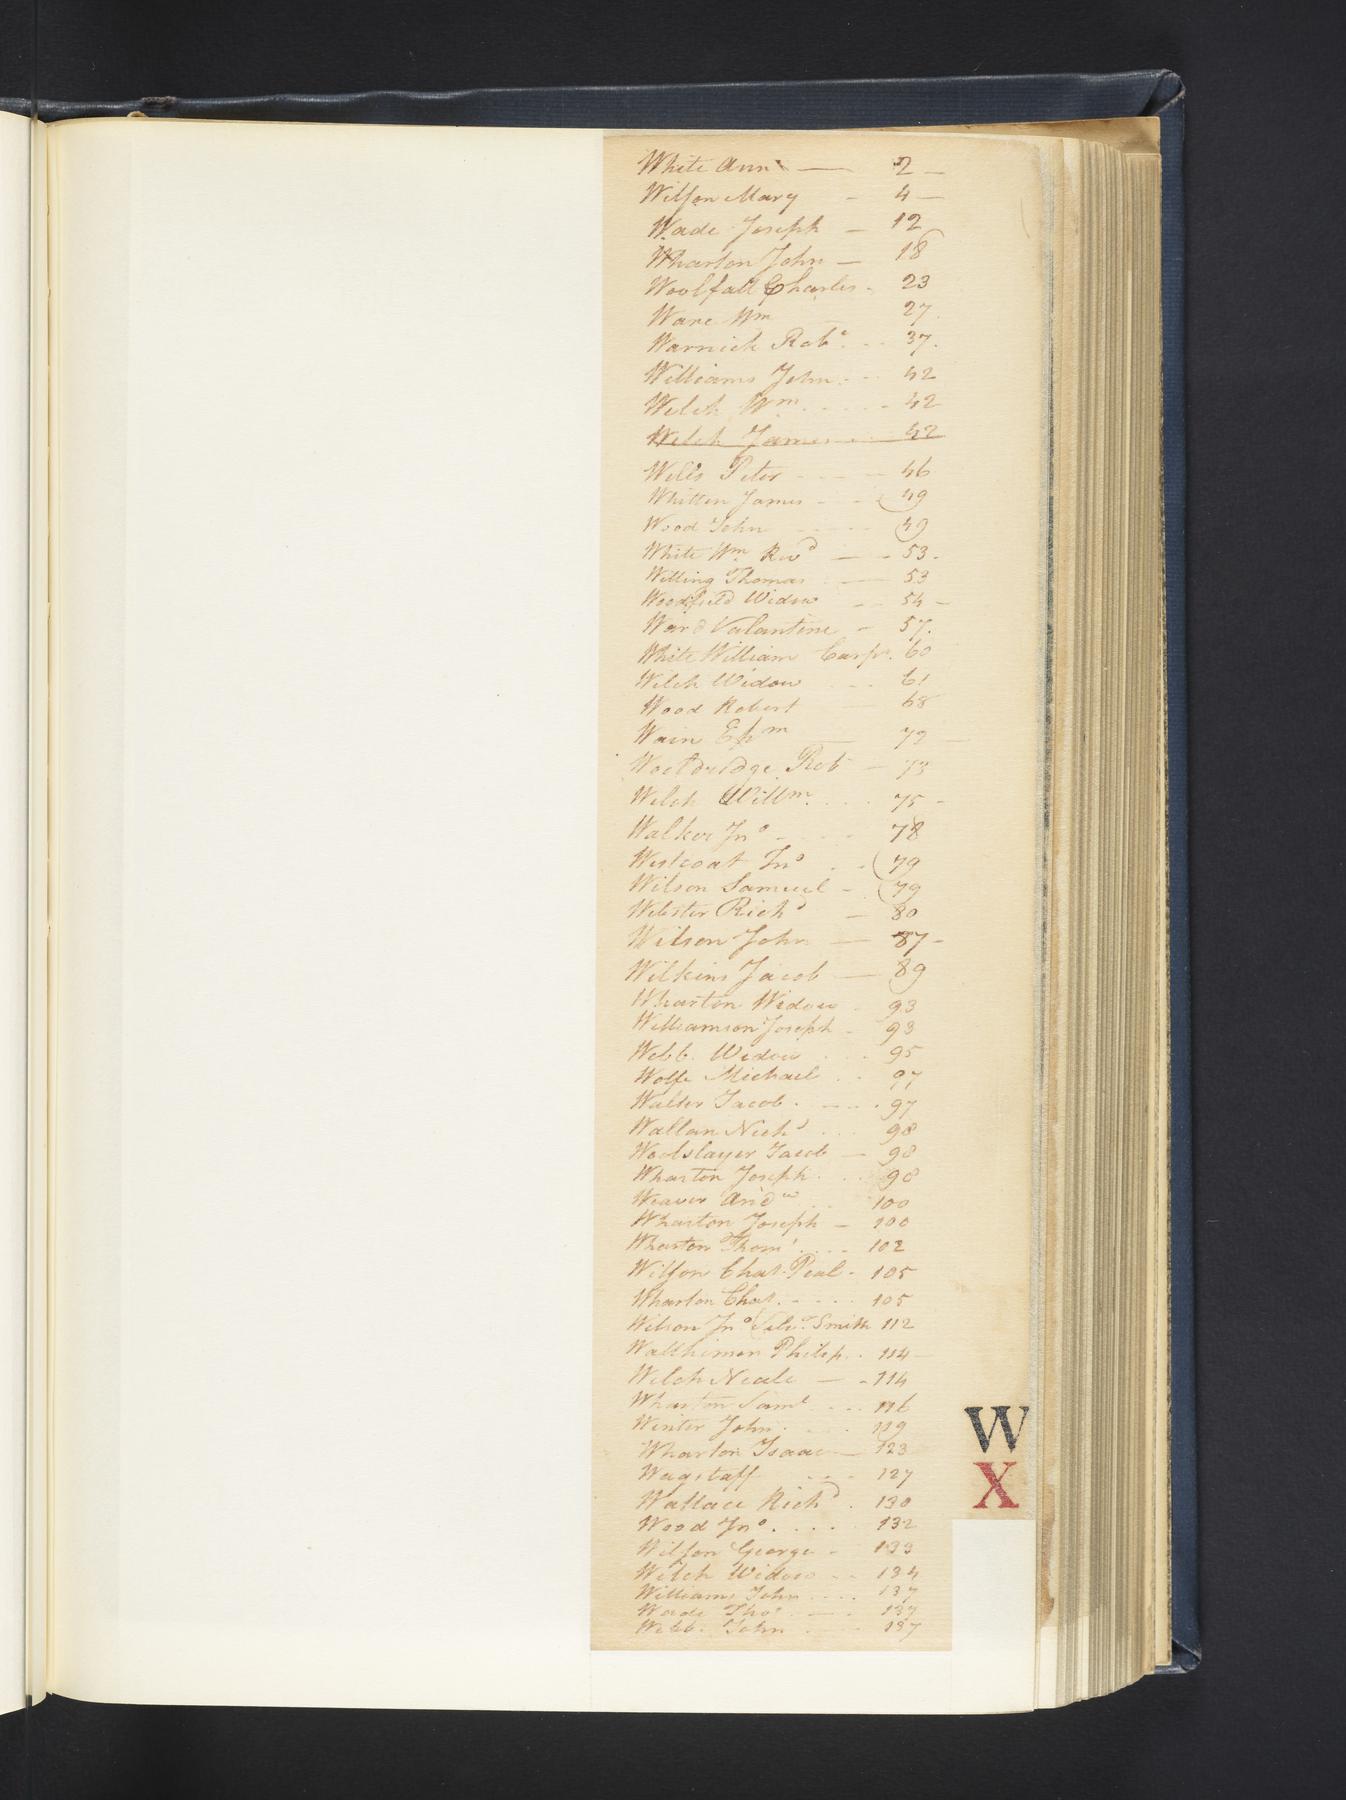 White Ann — 2 —
Wilson Mary - 4 —
Wade Joseph — 12
Wharton John — 18
Woolfall Charles - 23
Ware Wm 27.
Warnick Robt. - - 37.
Williams John - - 42
Welch Wm. - - - - 42
Welch James - - 42
Wells Peter - - - - 46
Whitten James - - - 49
Wood John - - - - 49
White Wm Revd — - 53.
Willing Thomas — 53
Woodfield Widow - - 54 -
Ward Valantine - 57.
White William Carpr. 60
Welch Widow - - - 61
Wood Robert — 68
Wain Ephm — 72 —
Wooldridge Rob — 73
Welch Willm. . . . 75 -
Walker Jno - - - - 78
Westcoat Jno . - 79
Wilson Samuel - 79
Webster Richd — 80
Wilson John — 87 -
Wilkins Jacob — 89
Wharton Widow - 93
Williamson Joseph - 93
Webb. Widow . . . 95
Wolfe Michael . . 97
Walter Jacob . - - - . 97
Wallan Nichs . . . 98
Woolslayer Jacob — 98
Wharton Joseph . . . 98
Weaver Andw . . 100
Wharton Joseph - 100
Wharton Thoms . . . - 102
Wilson Chas. Peal - 105
Wharton Chas. - - - - 105
Wilson Jno Silvr. Smith 112
Walthiman Philip . . 114 —
Welch Neale — - 114
Wharton Saml . . . . 116
Winter John . - . . . 119
Wharton Isaac — 123
Wagstaff - - - 127
Wallace Richd . 130
Wood Jno. . . . . 132
Wilson George - 133
Welch Widow - - 134
Williams John . . . . 137
Wade Thos. — - 137
Webb. John - — 137
W
X